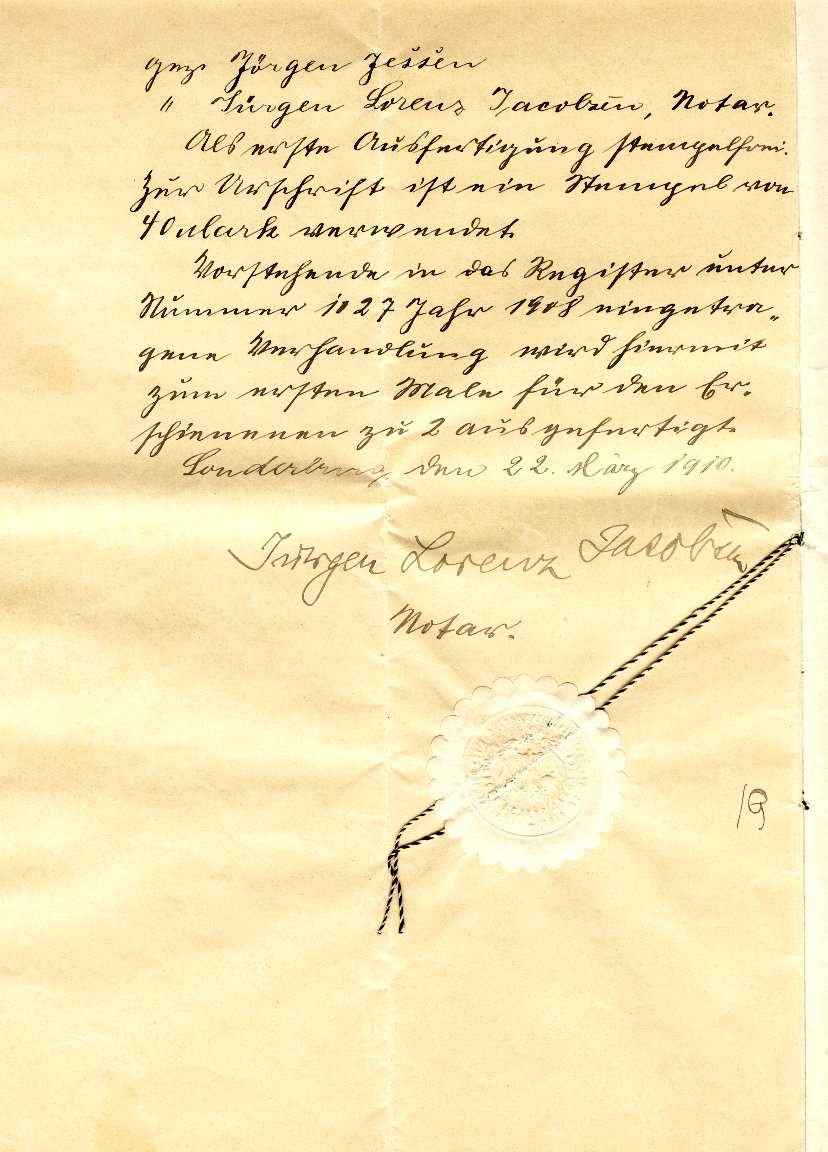 gez. Jörgen Jessen
" Jürgen Lorenz Jacobsen, Notar.
Als erste Ausfertigung stempelfrei.
Zur Urschrift ist ein Stempel von
40 Mark verwendet.
Vorstehende in das Register unter
Nummer 1027 Jahr 1908 eingetra„
gene Verhandlung wird hiermit
zum ersten Male für den Er-
schienenen zu 2 ausgefertigt.
Sonderburg, den 22. März 1910.
Jürgen Lorenz Jacobsen
Notar.